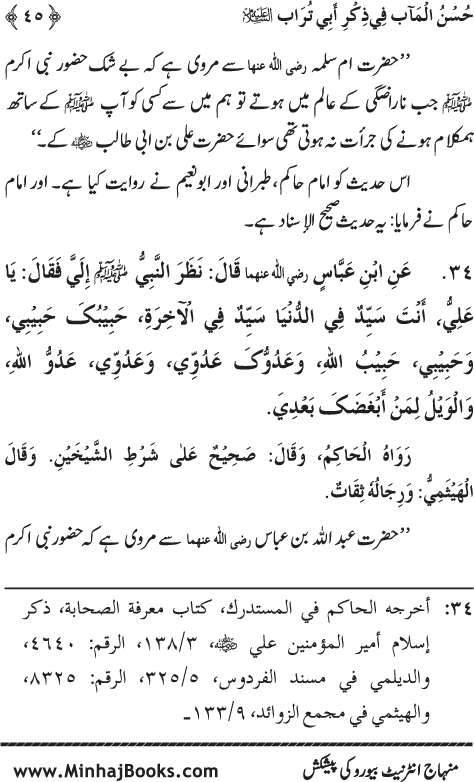 حُسْنُ الْمَآب فِي ذِكْرِ أَبِي تُرَاب ﴿٤٥﴾
’’حضرت ام سلمہ رضی اللہ عنہا سے مروی ہے کہ بے شک حضور نبی اکرم
ﷺ جب ناراضگی کے عالم میں ہوتے تو ہم میں سے کسی کو آپ ﷺ کے ساتھ
ہمکلام ہونے کی جرأت نہ ہوتی تھی سوائے حضرت علی بن ابی طالب ؓ کے۔‘‘
اس حدیث کو امام حاکم، طبرانی اور ابونعیم نے روایت کیا ہے۔ اور امام
حاکم نے فرمایا: یہ حدیث صحیح الإسناد ہے۔
٣٤. عَنِ ابْنِ عَبَّاسٍ رضی اللہ عنہما قَالَ: نَظَرَ النَّبِيُّ ﷺ إِلَيَّ فَقَالَ: يَا
عَلِيُّ، أَنْتَ سَيِّدٌ فِي الدُّنْيَا سَيِّدٌ فِي الْآخِرَةِ، حَبِيْبُکَ حَبِيْبِي،
وَحَبِيْبِي، حَبِيْبُ اللهِ، وَعَدُوُّکَ عَدُوِّي، وَعَدُوِّي، عَدُوُّ اللهِ،
وَالْوَيْلُ لِمَنْ أَبْغَضَکَ بَعْدِيَ.
رَوَاهُ الْحَاكِمُ، وَقَالَ: صَحِيْحٌ عَلىٰ شَرْطِ الشَّيْخَيْنِ. وَقَالَ
الْهَيْثَمِيُّ: وَرِجَالُهٗ ثِقَاتٌ.
’’حضرت عبد اللہ بن عباس رضی اللہ عنہما سے مروی ہے کہ حضور نبی اکرم
٣٤: أخرجه الحاكم في المستدرك، كتاب معرفة الصحابة، ذكر
إسلام أمير المؤمنين علي ؓ، ٣/١٣٨، الرقم: ٤٦٤٠،
والديلمي في مسند الفردوس، ٥/٣٢٥، الرقم: ٨٣٢٥،
والهيثمي في مجمع الزوائد، ٩/١٣٣۔
منہاج انٹرنیٹ بیورو کی پیشکش www.MinhajBooks.com